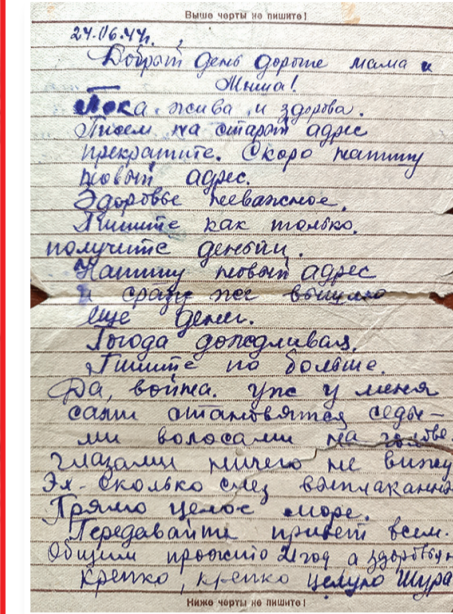 Выше черты не пишите!
24.06.44г.
Добрый день дорогие мама и
Мыша!
Пока жива и здорова.
Писем на старый адрес
прекратите. Скоро напишу
новый адрес.
Здоровье неважное.
Пишите как только
получите деньги.
Напишу новый адрес
и сразу же вышлю
еще денег.
Погода дождливая.
Пишите по больше.
Да, война. уже у меня
сами становятся седы-
ми волосами на голове.
глазами ничего не вижу
сколько слез выплакано
Прямо целое море.
Передавайте привет всем.
Общим прожито год а здоровья
Крепко, крепко целую Шура
Ниже черты не пишите!